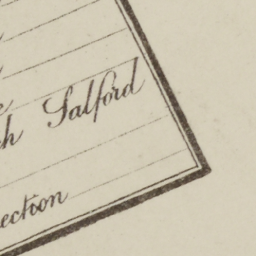 h Salford
ection